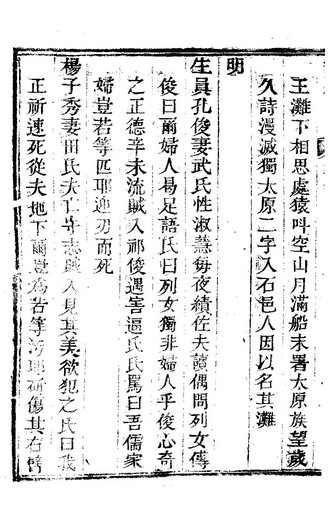 王灘下相思處猿呌空山月滿船末署太原族望歲
久詩漫滅獨太原二字入石邑人因以名其灘
明
生員孔俊妻武氏性淑慧每夜績佐夫讀偶問列女傳
俊曰爾婦人曷足語氏曰列女獨非婦人乎俊心奇
之正德辛未流賊入祁俊遇害逼氏氏罵曰吾儒家
婦豈若等匹耶遂刎而死
楊子秀妻田氏夫亡守志賊入見其美欲犯之氏曰我
正祈速死從夫地下爾豈為若等污耶斫傷其右臂